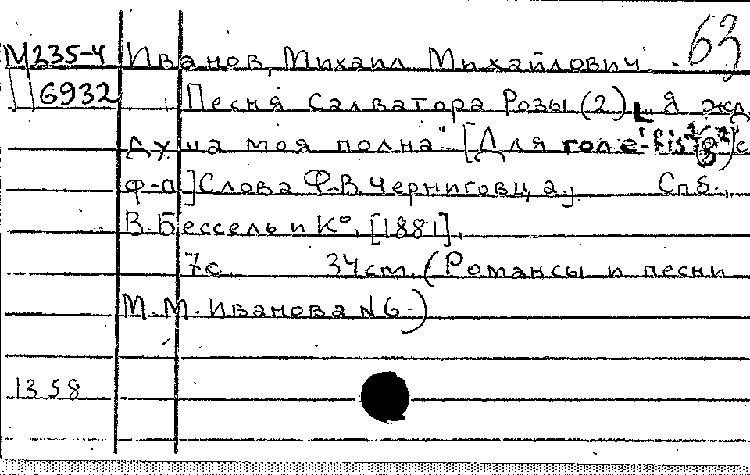 63
М235-4 Иванов, Михаил Михайлович.
6932 Песня Салватора Розы (2) "Я жд
душа моя полна" [Для голо с
ф-п] Слова Ф.В. Черниговца. Спб.,
В. Бессель и К°, [1881].
7с. 34cm. (Романсы и песни
М.М. Иванова N6.)
1358